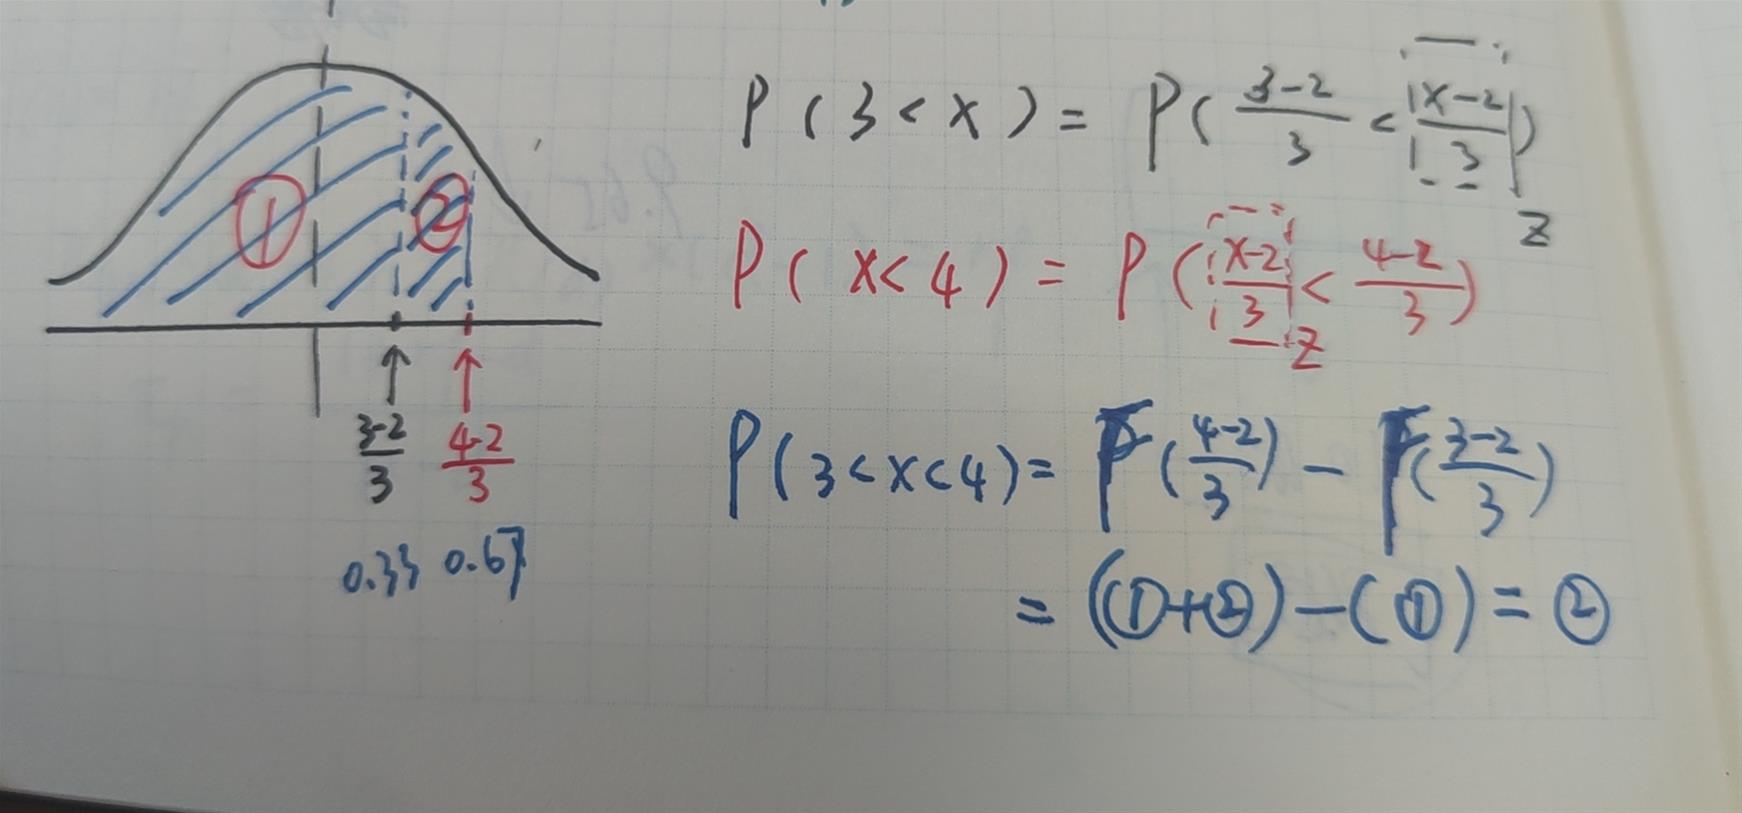 P(3<x) = P(\frac{3-2}{3} < \frac{x-2}{3})
Z
P(x<4) = P(\frac{x-2}{3} < \frac{4-2}{3})
Z
P(3<x<4) = F(\frac{4-2}{3}) - F(\frac{3-2}{3})
= (①+②)-(①) = ②
① ②
\frac{3-2}{3} \frac{4-2}{3}
0.33 0.67